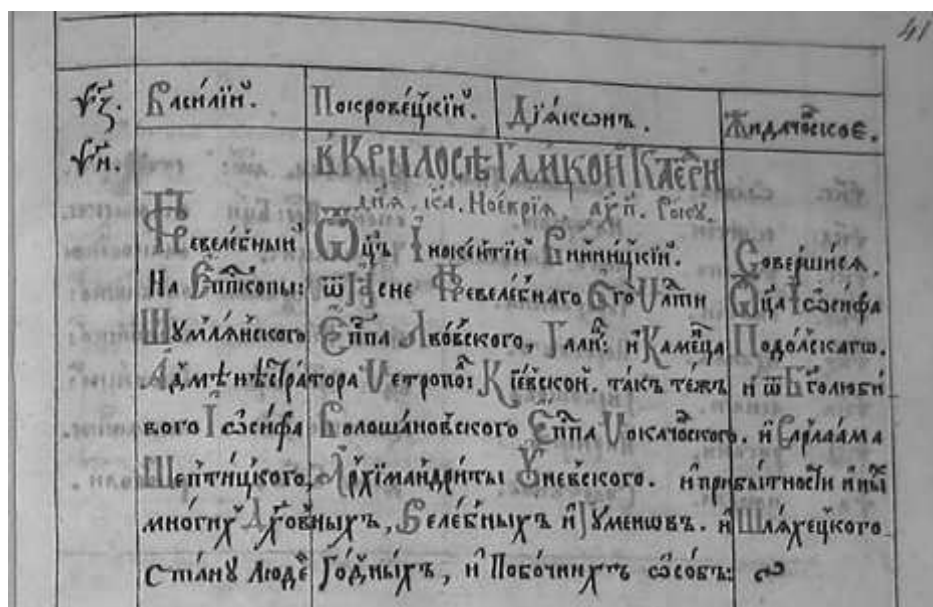 41
Василїй. Покровецкїй. Дїѧконъ. Жидачовское.
В Крилосѣ Галицкой
дня, кл. Ноеврїѧ, ахп. Року.
Превелебный Ѿцъ Інокентїй Винницкїй. Совершисѧ.
На Епископы: ѿ Превелебнаго Его Млти Ѿца Іѡсифа
Шумлѧнского Еппа Лвовского, Гали: и Камеца Подолскагѡ.
Адмѣнѣстратора Метропо: Кїевской. такъ тежъ и ѿ Боголюби
вого Іѡсифа Волошиновского Еппа Мокачовского. и Варлаама
Шептицкого, Архїмандриты Оуневского. и при бытности
многих Духовныхъ, Велебныхъ Игуменовъ. и Шлѧхецкого
Стану Люде Годныхъ, и Побочнихъ ѡсобъ: